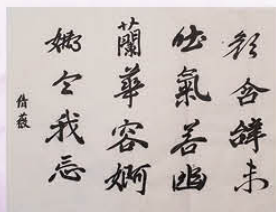 顏含辭未
吐氣若幽
蘭華容婀
娜令我忘